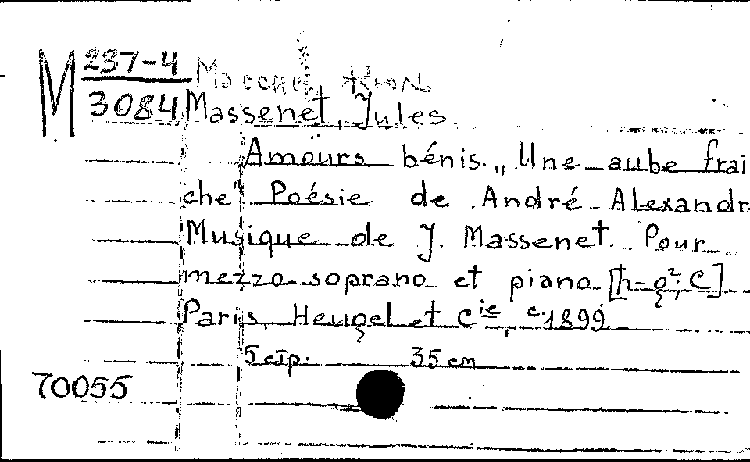 M 237-4
3084 Massenet, Jules
Amours bénis. „Une aube frai
che" Poésie de André Alexandr
Musique de J. Massenet. Pour
mezzo-soprano et piano [h-g²; C]
Paris, Heugel et Cie, c. 1899
5 стр. 35 cm
70055